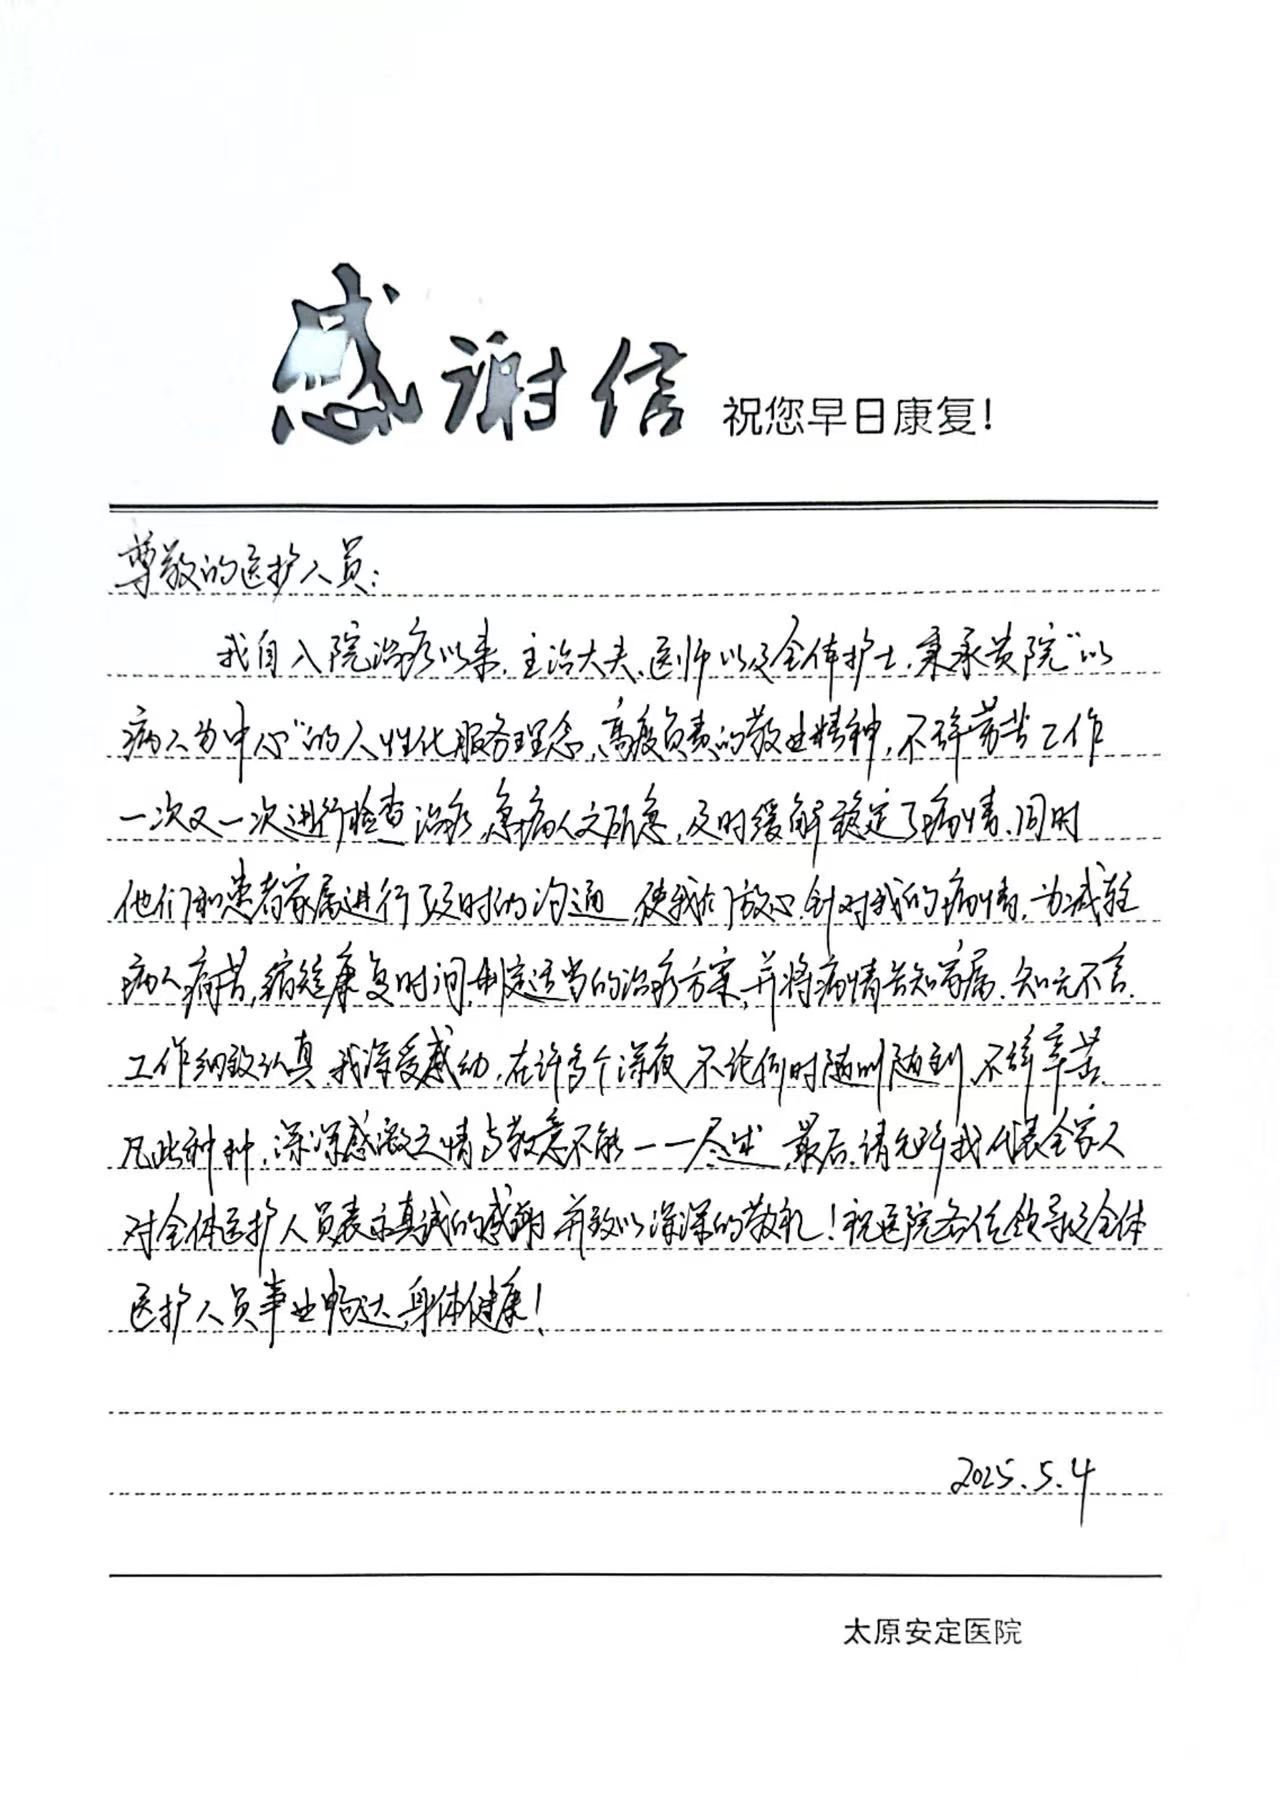 感谢信 祝您早日康复!
尊敬的医护人员:
我自入院治疗以来,主治大夫、医师以及全体护士,秉承贵院"以
病人为中心"的人性化服务理念、高度负责的敬业精神,不辞劳苦工作
一次又一次进行检查治疗,急病人之所急,及时缓解稳定了病情,同时
他们和患者家属进行了及时的沟通,使我们放心,针对我的病情,为减轻
病人病苦,缩短康复时间,制定适当的治疗方案,并将病情告知家属,知无不言,
工作细致认真,我深受感动,在许多个深夜,不论何时随叫随到,不辞辛苦,
凡此种种,深深感激之情与敬意不能一一尽述,最后,请允许我代表全家人
对全体医护人员表示真诚的感谢,并致以深深的敬礼!祝医院各位领导及全体
医护人员事业畅达,身体健康!
2025.5.4
太原安定医院